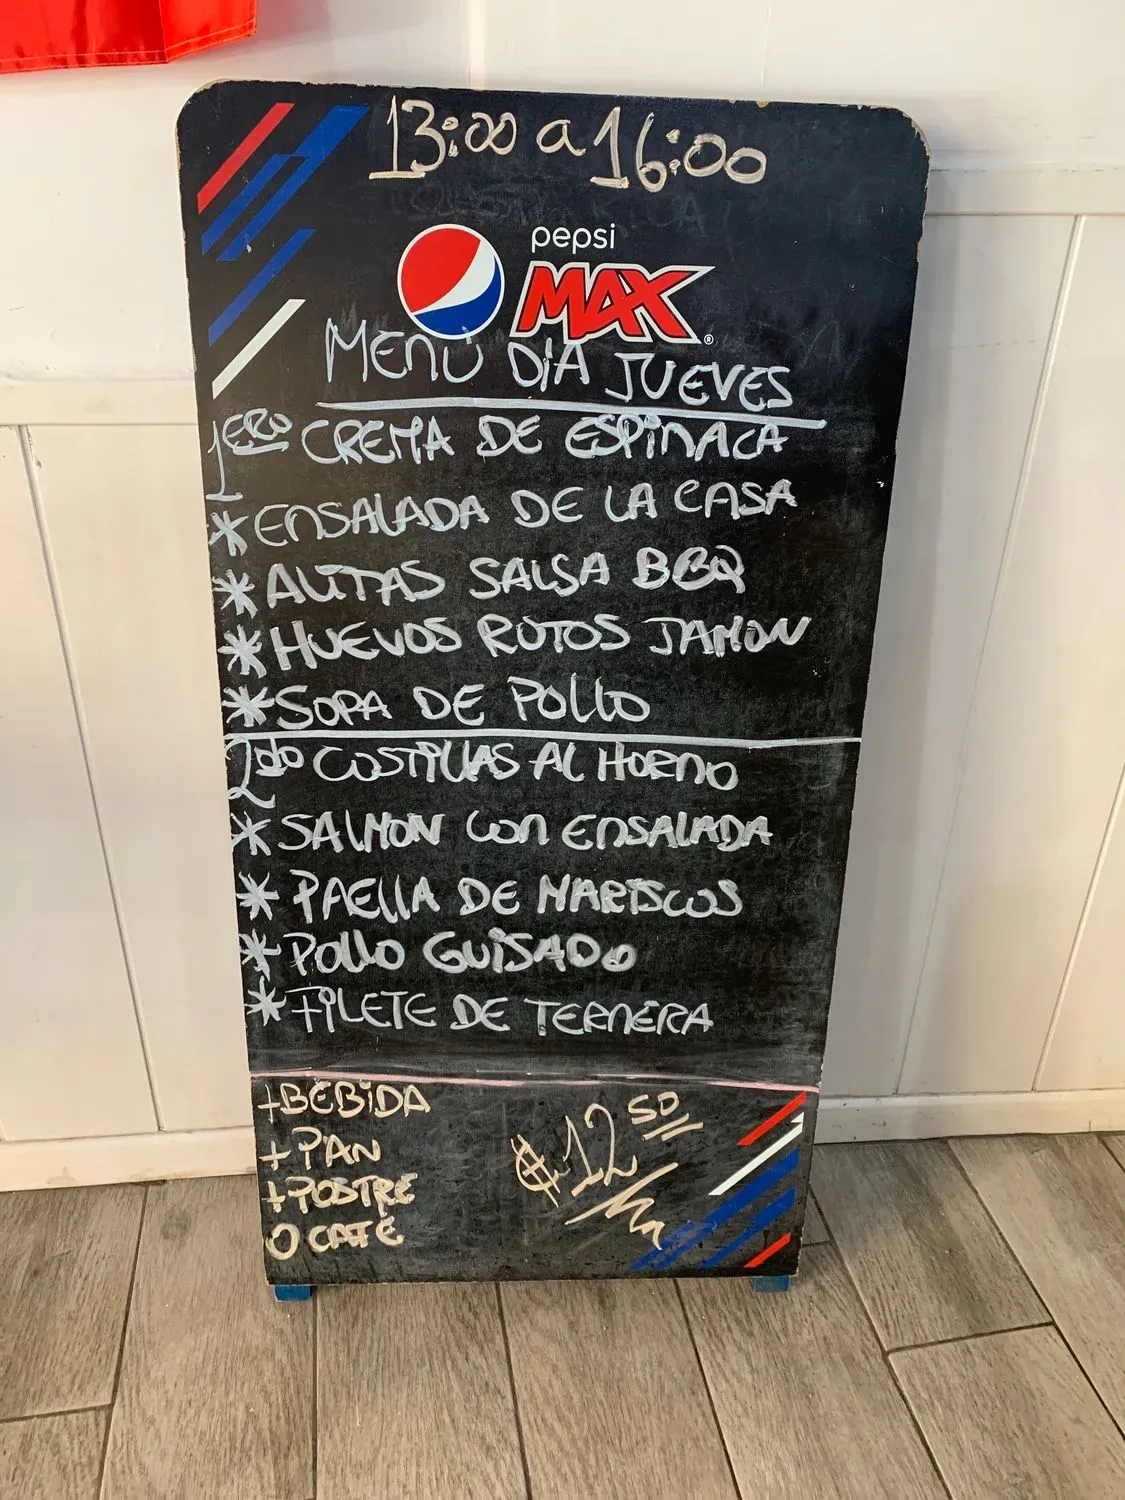 13:00 a 16:00
pepsi
MAX®
MENÚ DÍA JUEVES
1ERO CREMA DE ESPINACA
* ENSALADA DE LA CASA
* ALITAS SALSA BBQ
* HUEVOS ROTOS JAMON
* SOPA DE POLLO
2do COSTILLAS AL HORNO
* SALMON CON ENSALADA
* PAELLA DE MARISCOS
* POLLO GUISADO
* FILETE DE TERNERA
+BEBIDA
+PAN
+POSTRE
O CAFÉ
€12 50